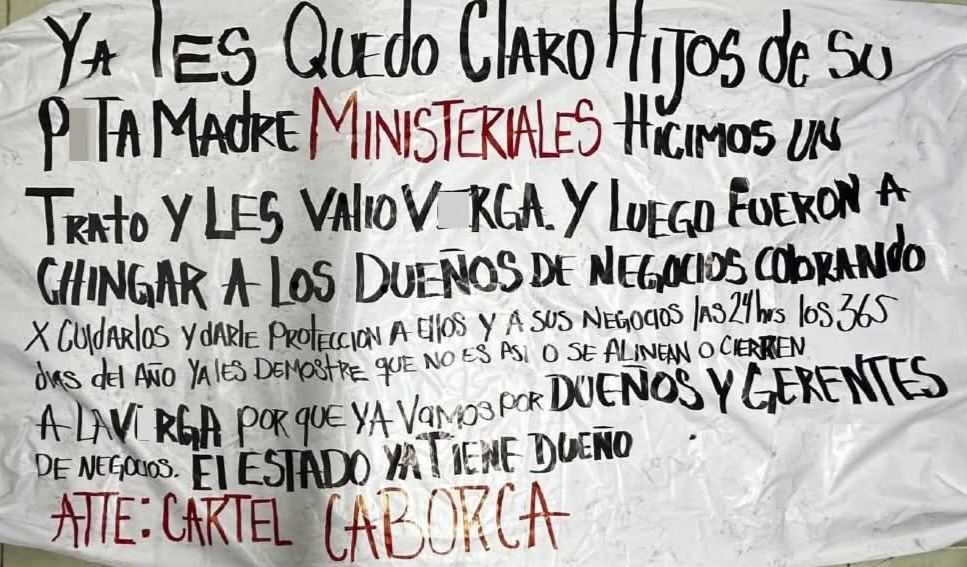 YA LES QUEDO CLARO HIJOS de SU
P TA MAdRE MINISTERIALES HICIMOS UN
TRAtO Y LES VALIO V RGA. Y LUEGO FUERON A
CHINGAR A LOS DUEÑOS DE NEGOCIOS COBRANdO
X CUIDARLOS Y dARLE PROTECCION A EllOS Y A SUS NEGOCIOS lAS 24 hrs lOS 365
dIAS dEl AÑO YA lES DEMOSTRE QUE NO ES ASI O SE ALINEAN O CIERREN
A LA V RGA PORQUE YA VAMOS POR DUEÑOS Y GERENTES
DE NEGOCIOS. El ESTADO YA TIENE DUEÑO
ATTE: CARTEL CABORCA